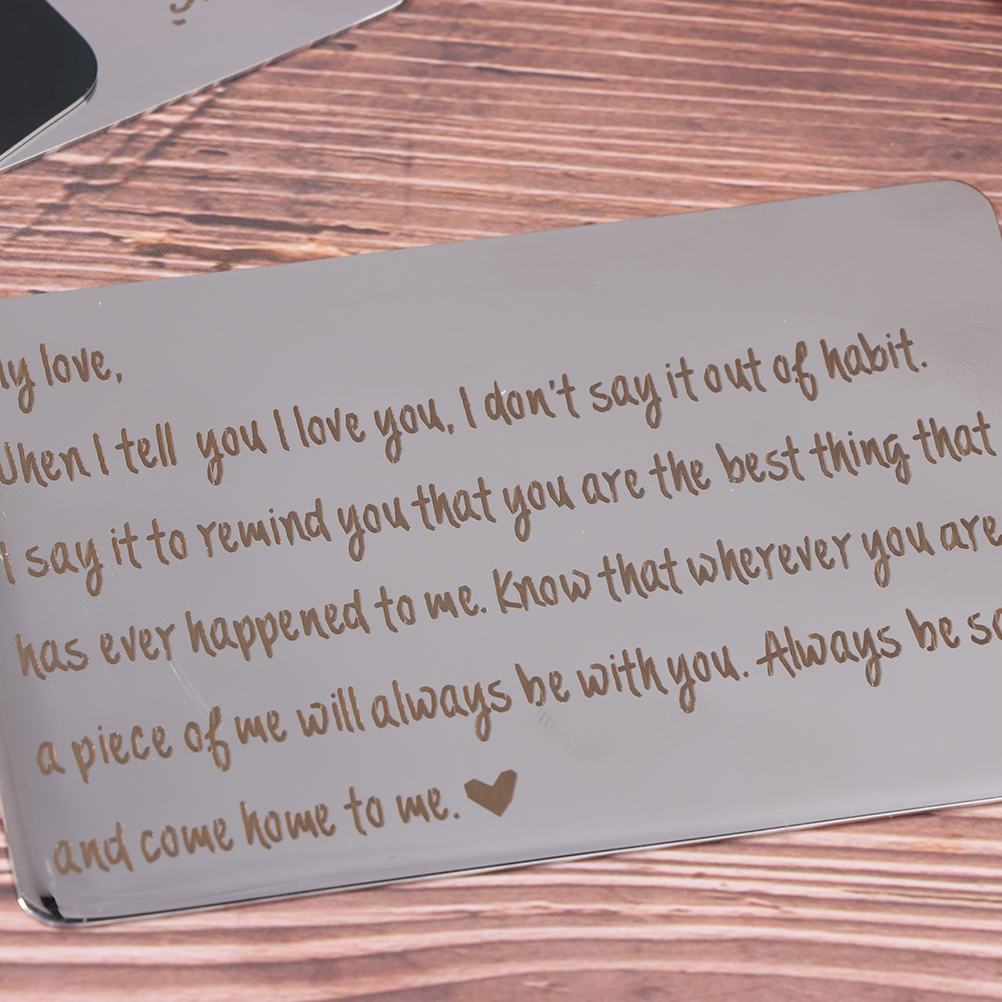 ly love,
When I tell you I love you, I don't say it out of habit.
I say it to remind you that you are the best thing that
has ever happened to me. Know that wherever you are
a piece of me will always be with you. Always be
and come home to me.